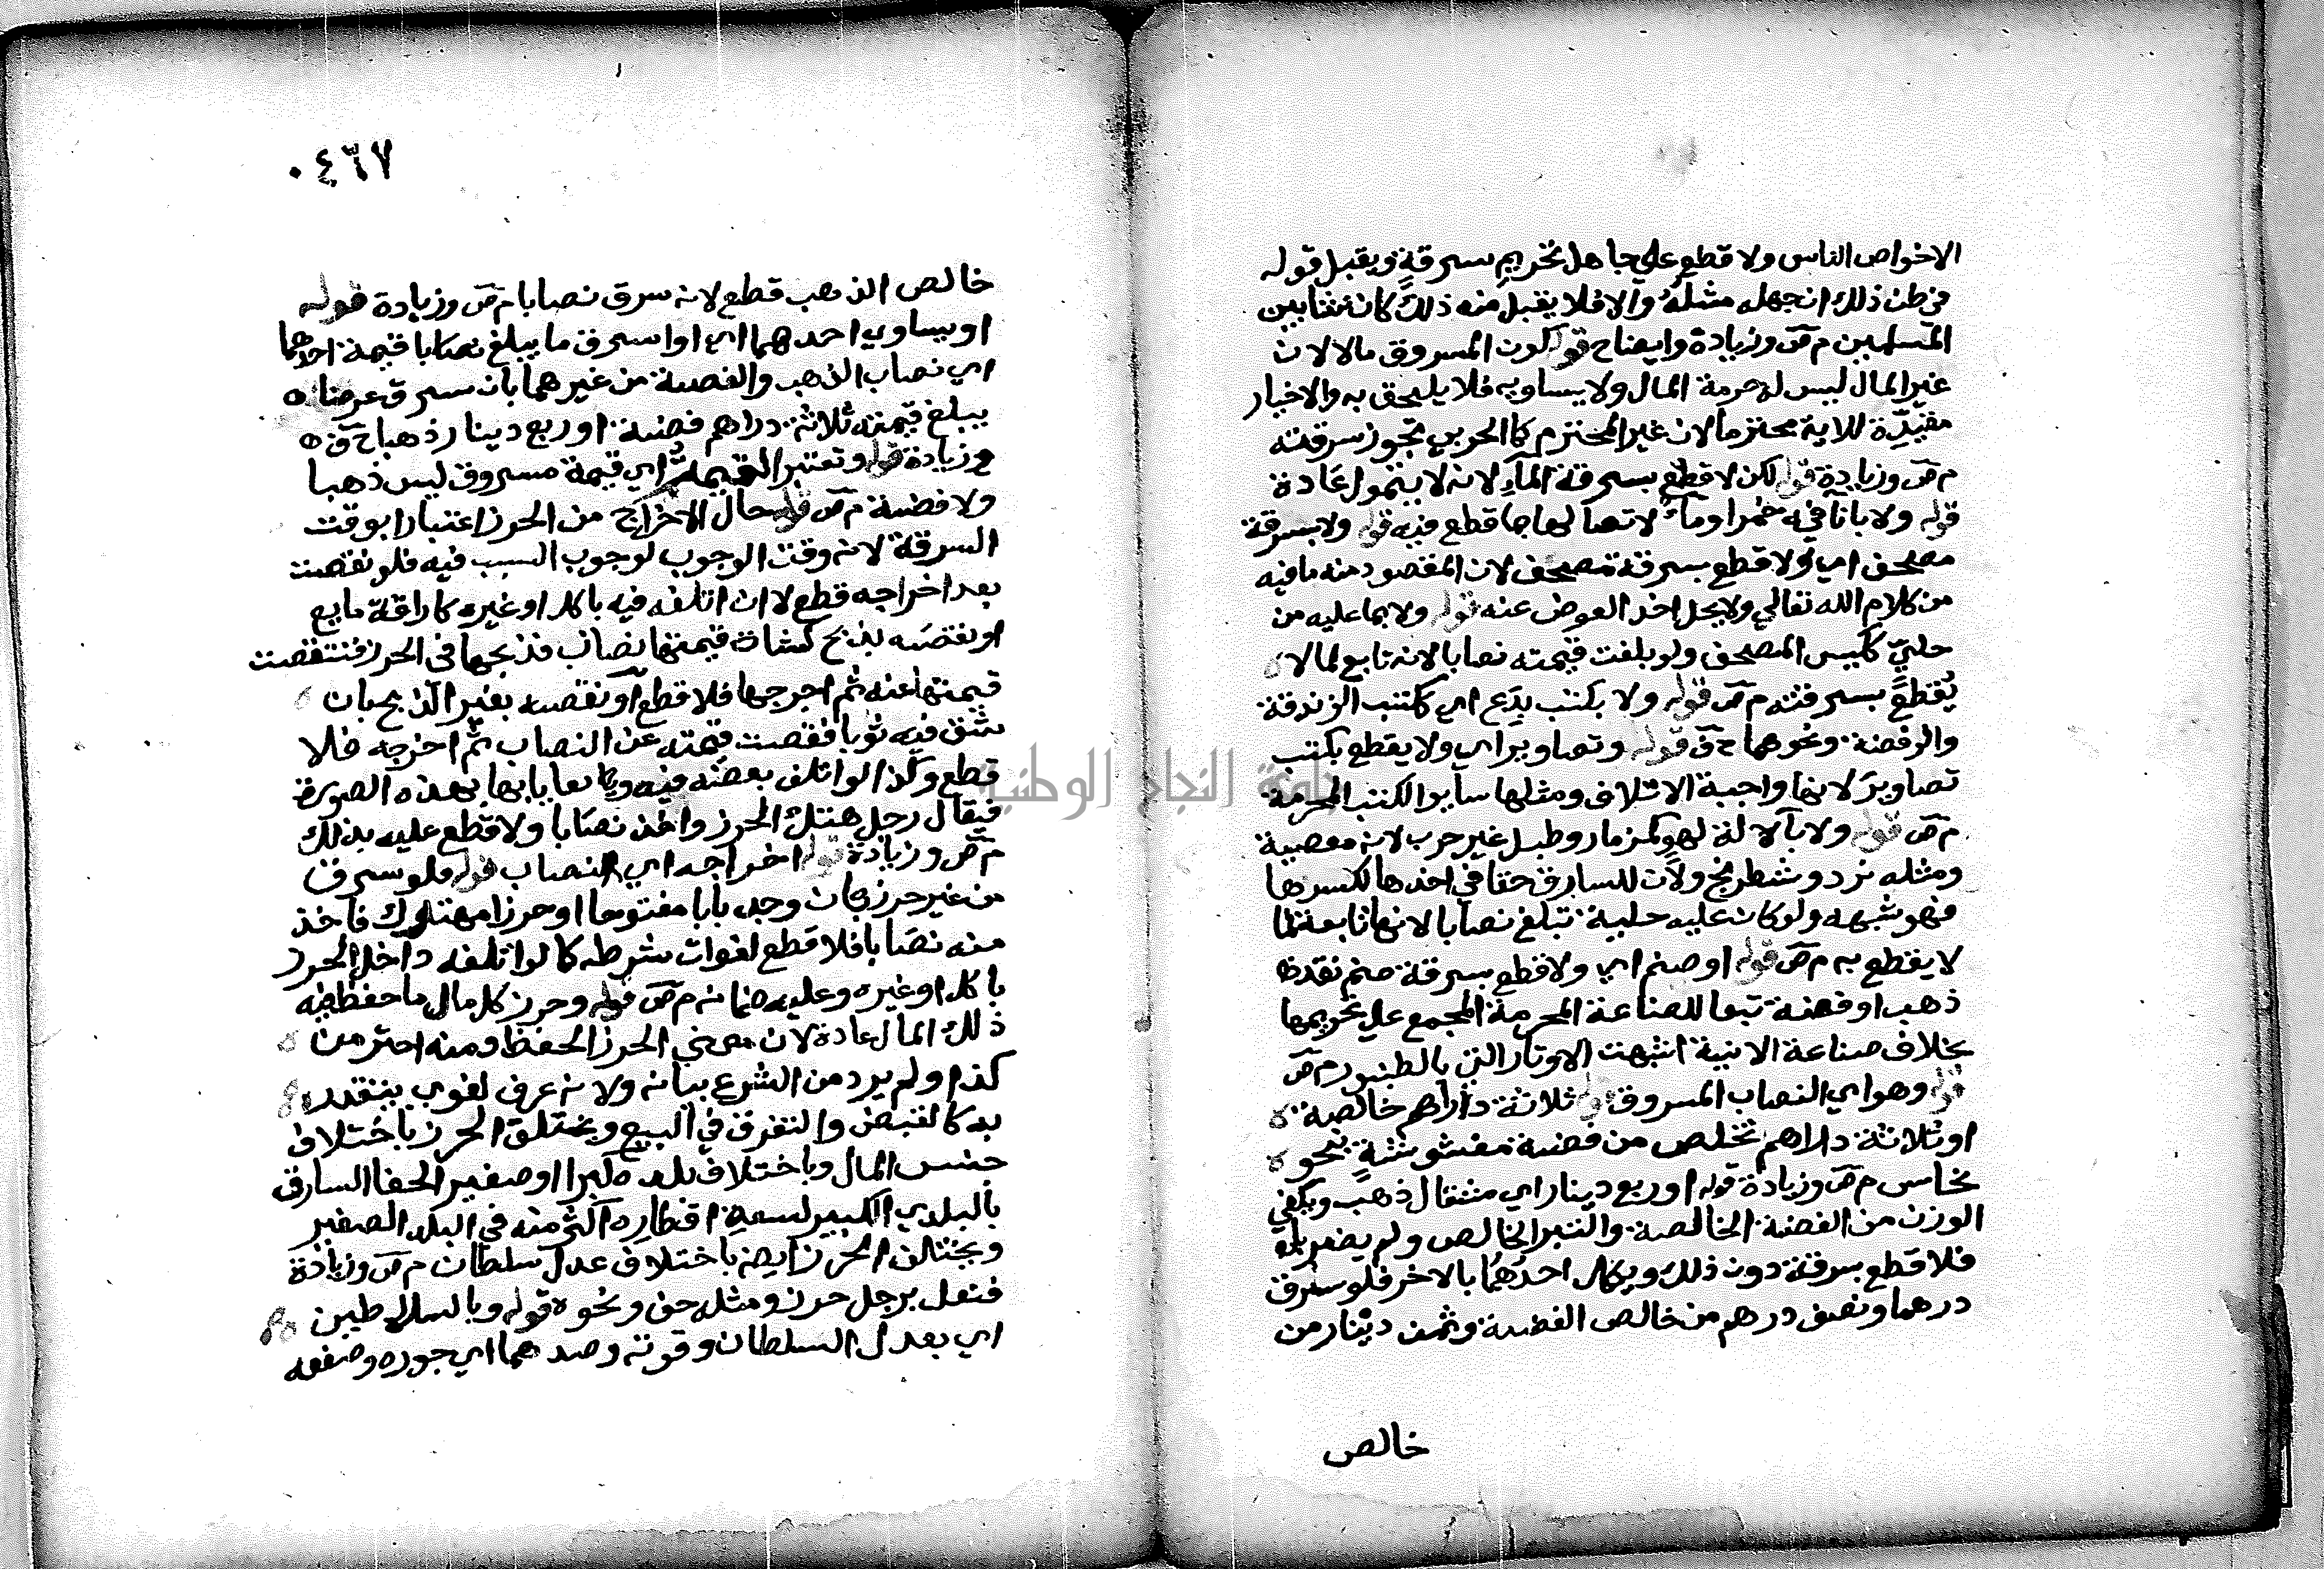 الاخواص الناس ولا قطع علي جاهل تحريم سرقة ويقبل قوله
في ظن ذلك ان جهله مثله والا فلا يقبل منه ذلك كان نشا بين
المسلمين م ص وزيادة وايضاح قوله كون المسروق مالا لان
غير المال ليس له حرمة المال ولا يساويه فلا يلحق به والاخبار
مقيدة للاية محترما لان غير المحترم كالحربي تجوز سرقته
م ص وزيادة قوله لكن لا قطع بسرقة الماء لانه لا يتمول عادة
قوله ولا بانا فيه خمر او ماء لاتصالها بما لا قطع فيه قوله ولا بسرقة
مصحف اي ولا قطع بسرقة مصحف لان المقصود منه ما فيه
من كلام الله تعالي ولا يحل اخذ العوض عنه قوله ولا بما عليه من
حلي ككيس المصحف ولو بلغت قيمته نصابا لانه تابع لما لا
يقطع بسرقته م ص قوله ولا بكتب بدع اي ككتب الزندقة
والرفضة ونحوهما ح ق قوله وتصاوير اي ولا يقطع بكتب
تصاوير لانها واجبة الاتلاف ومثلها ساير الكتب المحرمة
م ص قوله ولا بالة لهو كمزمار وطبل غير حرب لانه معصية
ومثله نرد وشطرنج ولان للسارق حقا في اخذها لكسرها
فهو شبهه ولو كان عليه حلية تبلغ نصابا لانها تابعة لما
لا يقطع به م ص قوله او صنم اي ولا قطع بسرقة صنم نقد
ذهب او فضة تبعا للصناعة المحرمة المجمع علي تحريمها
بخلاف صناعة الانية اشبهت الاوتار التي بالطنبور م ص
قوله وهو اي النصاب المسروق قوله ثلاثة دراهم خالصة
او ثلاثة دراهم تخلص من فضة مغشوشة بنحو
نحاس م ص وزيادة قوله او ربع دينار اي مثقال ذهب ويكفي
الوزن من الفضة الخالصة والتبر الخالص ولم يضربا
فلا قطع بسرقة دون ذلك ويكمل احدهما بالاخر فلو سرق
درهما ونصف درهم من خالص الفضة وثمن دينار من
خالص
٠٤٦٧
خالص الذهب قطع لانه سرق نصابا م ص وزيادة قوله
او يساوي احدهما اي او سرق ما يبلغ نصابا قيمة احدهما
اي نصاب الذهب والفضة من غيرهما بان سرق عرضا
يبلغ قيمته ثلاثة دراهم فضة او ربع دينار ذهبا ح ق
وزيادة قوله وتعتبر القيمة اي قيمة مسروق ليس ذهبا
ولا فضة م ص قوله حال الاخراج من الحرز اعتبارا بوقت
السرقة لانه وقت الوجوب لوجوب السبب فيه فلو نقصت
بعد اخراجه قطع لا ان اتلفه فيه باكل او غيره كاراقة مايع
او نقصه بذبح كشاة قيمتها نصاب فذبحها في الحرز فنتقصت
قيمتها عنه ثم اخرجها فلا قطع او نقصه بغير الذبح بان
شق فيه ثوبا فنقصت قيمته عن النصاب ثم اخرجه فلا
قطع وكذا لو اتلف بعضه فيه ويعايا بها بهذه الصورة
فيقال رجل هتك الحرز واخذ نصابا ولا قطع عليه بذلك
م ص وزيادة قوله اخراجه اي النصاب قوله فلو سرق
من غير حرز بان وجد بابا مفتوحا او حرزا مهتوك فاخذ
منه نصابا فلا قطع لفوات شرطه كما لو اتلفه داخل الحرز
باكل او غيره وعليه ضمانه م ص قوله وحرز كل مال ما حفظ فيه
ذلك المال عادة لان معني الحرز الحفظ ومنه احترز من
كذا ولم يرد من الشرع بيانه ولا نه عرف لغوي يتقدر
به كالقبض والتفرق في البيع ويختلف الحرز باختلاف
جنس المال وباختلاف بلد كبرا وصغير الخفا السارق
بالبلد الكبير لسعة اقطاره اكثر منه في البلد الصغير
ويختلف الحرز ايضا باختلاف عدل سلطان م ص وزيادة
فنعل برجل حرز ومثله خف ونحوه قوله وبالسلاطين
اي بعدل السلطان وقوته وضدهما اي جوره وضعفه